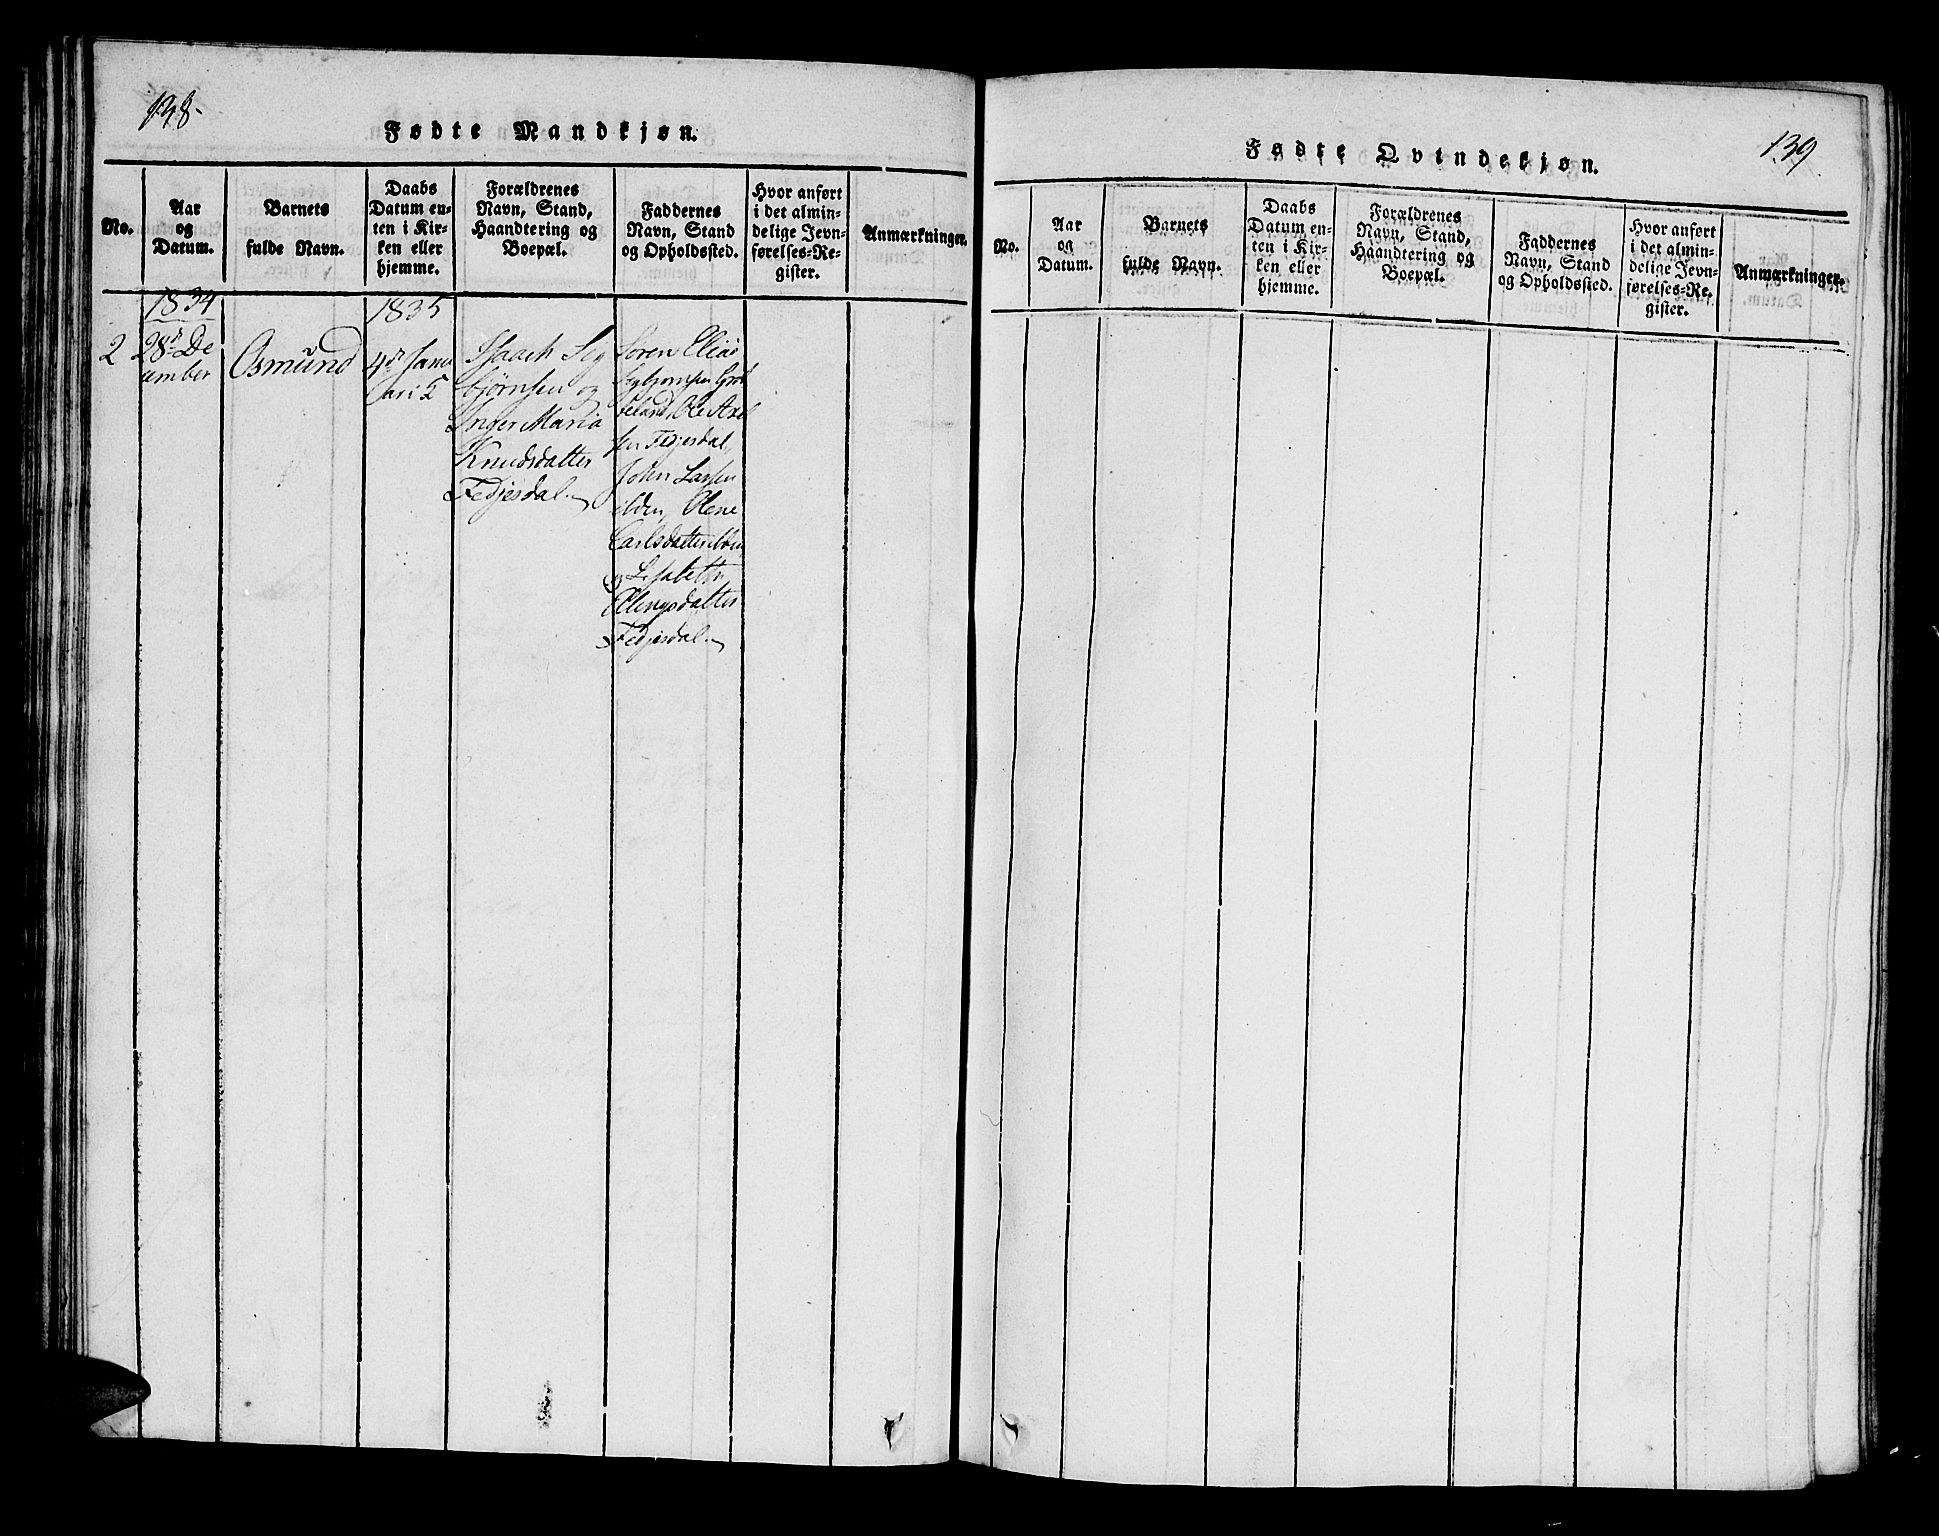 138-
Fødte Mandkjøn.
No.
Aar
og
Datum.
Barnets
fulde Navn.
Daabs
Datum en-
ten i Kir-
ken eller
hjemme.
Forældrenes
Navn, Stand,
Haandtering og
Boepæl.
Faddernes
Navn, Stand
og Opholdssted.
Hvor anført
i det almin-
delige Jevn-
førelses-Re-
gister.
Anmærkninger.
1834
2
28de De
cember
Osmund
1835
4de Janu
ari
Isaach Seg
bjørnsen og
Inger Maria
Knudsdatter
Fedjesdal.
Søren Elias
Ole Axel
sen Fedjesdal,
John Larsen
Olene
Carlsdatter
og Lisabeth
Ellingsdatter
Fedjesdal.
139
Fødte Qvindekjøn.
No.
Aar
og
Datum.
Barnets
fulde Navn.
Daabs
Datum en-
ten i Kir-
ken eller
hjemme.
Forældrenes
Navn, Stand,
Haandtering og
Boepæl.
Faddernes
Navn, Stand
og Opholdssted.
Hvor anført
i det almin-
delige Jevn-
førelses-Re-
gister.
Anmærkninger.